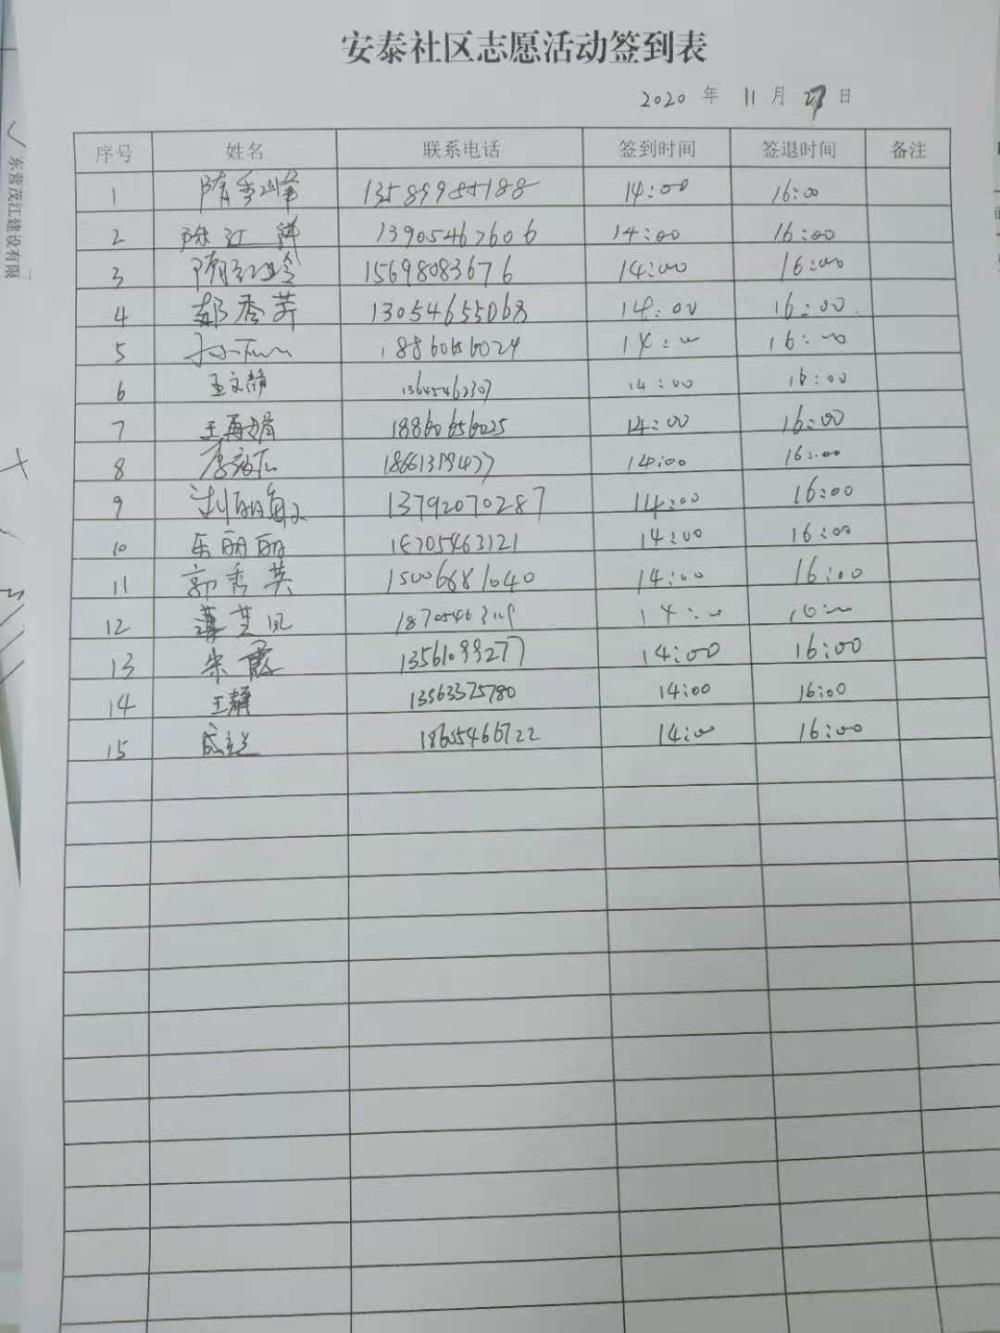 安泰社区志愿活动签到表
2020 年 11 月 27 日
序号 姓名 联系电话 签到时间 签退时间 备注
1 隋秀峰 13589985188 14:00 16:00
2 13905467606 14:00 16:00
3 隋红玲 15698083676 14:00 16:00
4 郝秀芳 13054655068 14:00 16:00
5 18860656024 14:00 16:00
6 王文静 13645462307 14:00 16:00
7 王再娟 18860656025 14:00 16:00
8 14:00 16:00
9 13792070287 14:00 16:00
10 乐丽丽 14:00 16:00
11 郭秀英 15006681040 14:00 16:00
12 薄芝凤 14:00 16:00
13 朱霞 13561099277 14:00 16:00
14 王静 13563375780 14:00 16:00
15 14:00 16:00
东营茂江建设有限